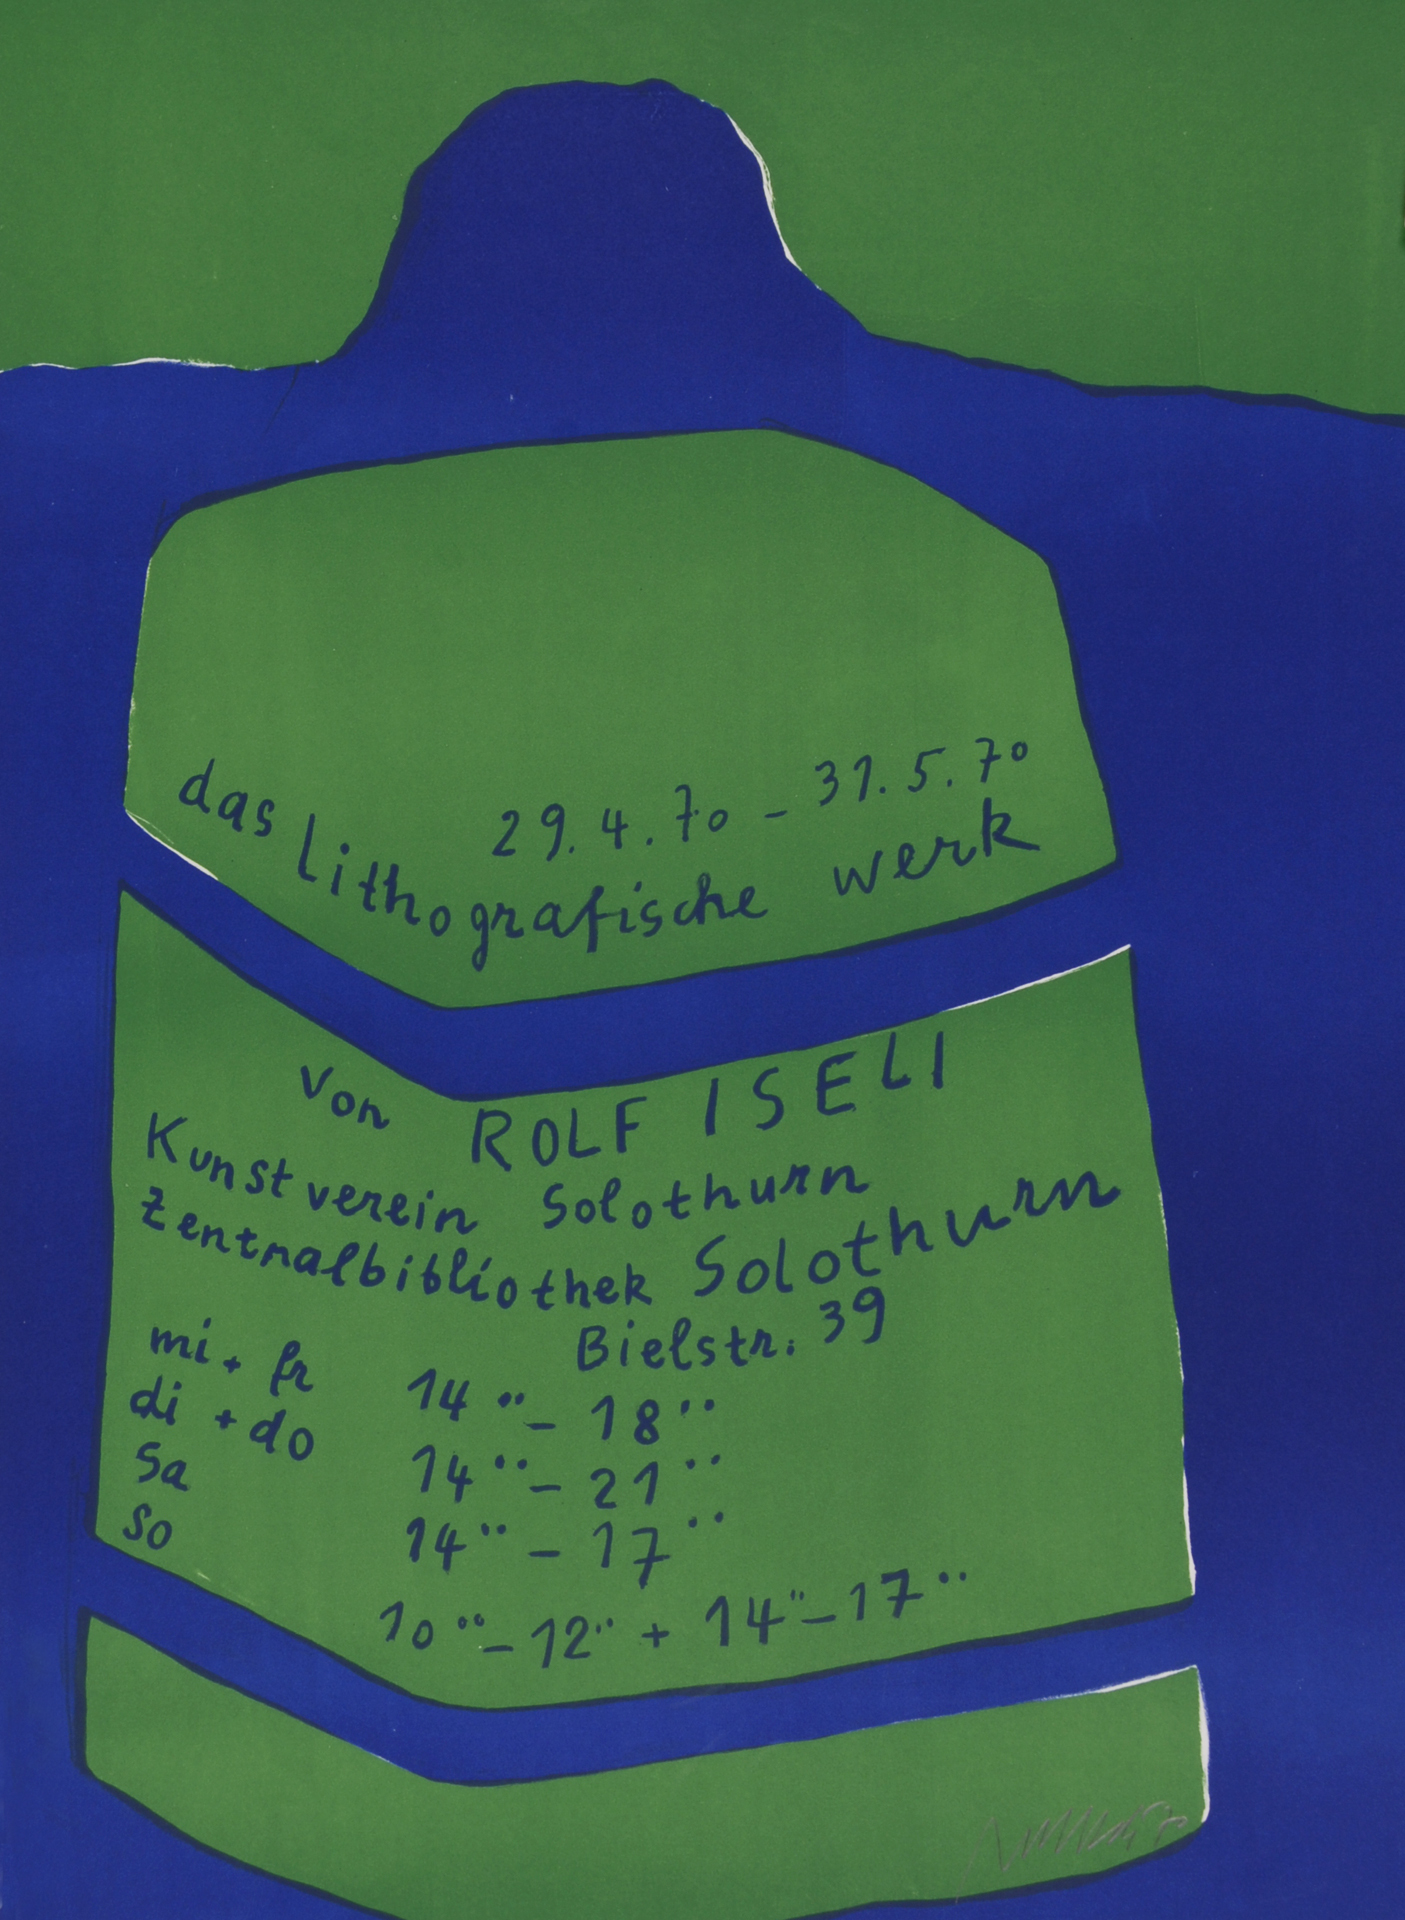 29.4.70 – 31.5.70
das Lithografische werk
von ROLF ISELI
Kunstverein Solothurn
Zentralbibliothek Solothurn
Bielstr. 39
mi + fr 14°° – 18°°
di + do 14°° – 21°°
sa 14°° – 17°°
so 10°° – 12°° + 14°° – 17°°